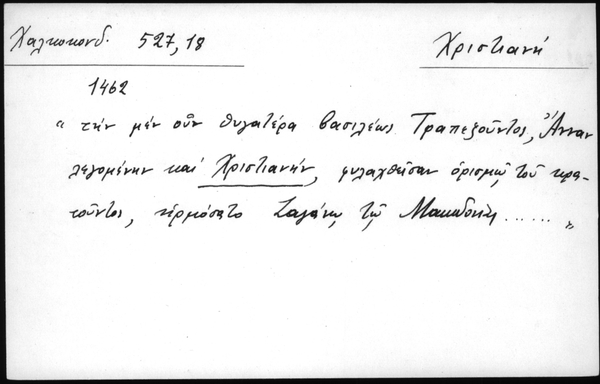 Χαλκοκονδ. 527,18
Χριστιανή
1462
“ τήν μέν οὖν θυγατέρα βασιλέως Τραπεζοῦντος, Ἄνναν
λεγομένην καί Χριστιανήν, φυλαχθεῖσαν ὁρισμῷ τοῦ κρα-
τοῦντος, ἡρμόσατο Ζαγάνῳ τῷ Μακεδονίας ...... ”